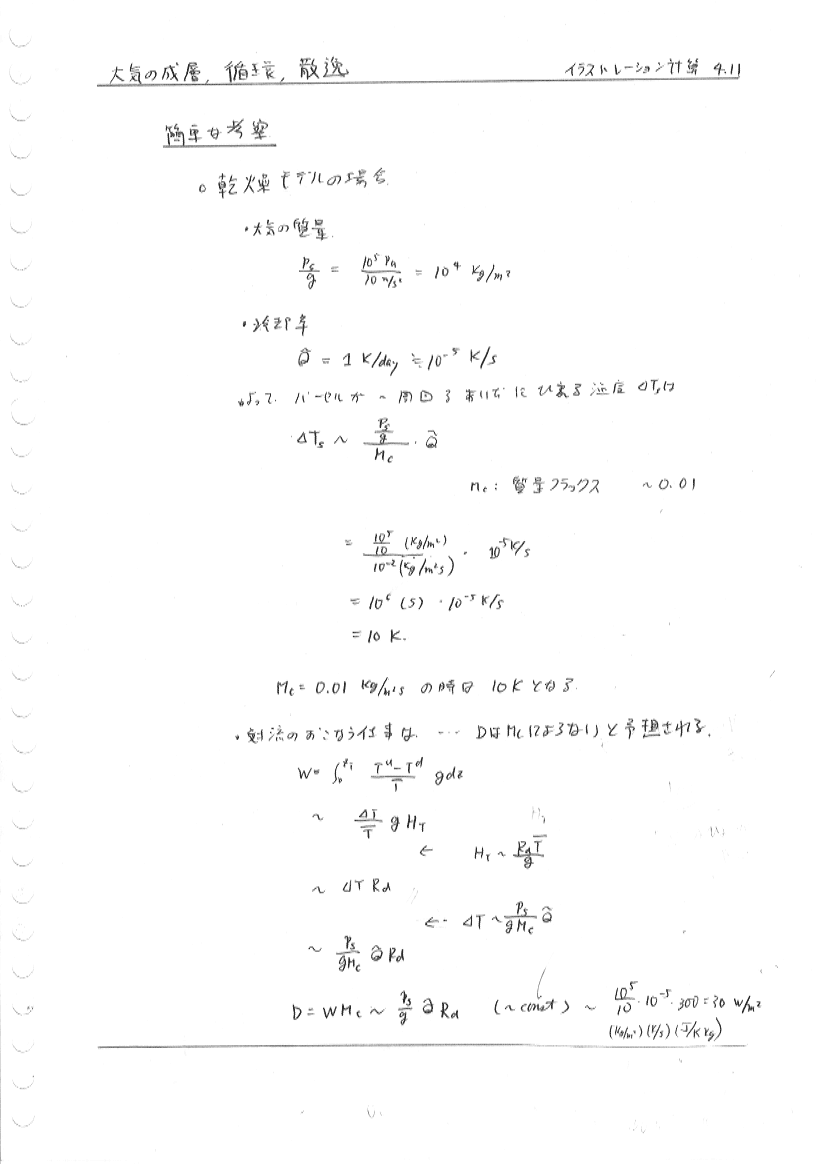 大気の成層, 循環, 散逸
イラストレーション計算 4.11
簡単な考察
○ 乾燥モデルの場合
・大気の質量
Ps/g = 10^5 Pa / 10 m/s² = 10^4 kg/m²
・冷却率
Q̂ = 1 K/day ≒ 10^-5 K/s
よって パーセルが 一周回るあいだにひえる温度 ΔTsは
ΔTs ~ (Ps/g)/Mc · Q̂
Mc: 質量フラックス ~0.01
= (10^5/10 (kg/m²)) / (10^-2 (kg/m²s)) · 10^-5 K/s
= 10^6 (s) · 10^-5 K/s
= 10 K.
Mc = 0.01 kg/m²s の時は 10K となる
・対流のおこなう仕事は ... DはMcによらないと予想される.
W = ∫ (T^u - T^d)/T̄ g dz
~ ΔT/T̄ g H_T
← H_T ~ Rd T̄/g
~ ΔT Rd
← ΔT ~ Ps/gMc Q̂
~ Ps/gMc Q̂ Rd
D = WMc ~ Ps/g Q̂ Rd (~ const) ~ 10^5/10 · 10^-5 · 300 = 30 W/m²
(kg/m²) (K/s) (J/K kg)